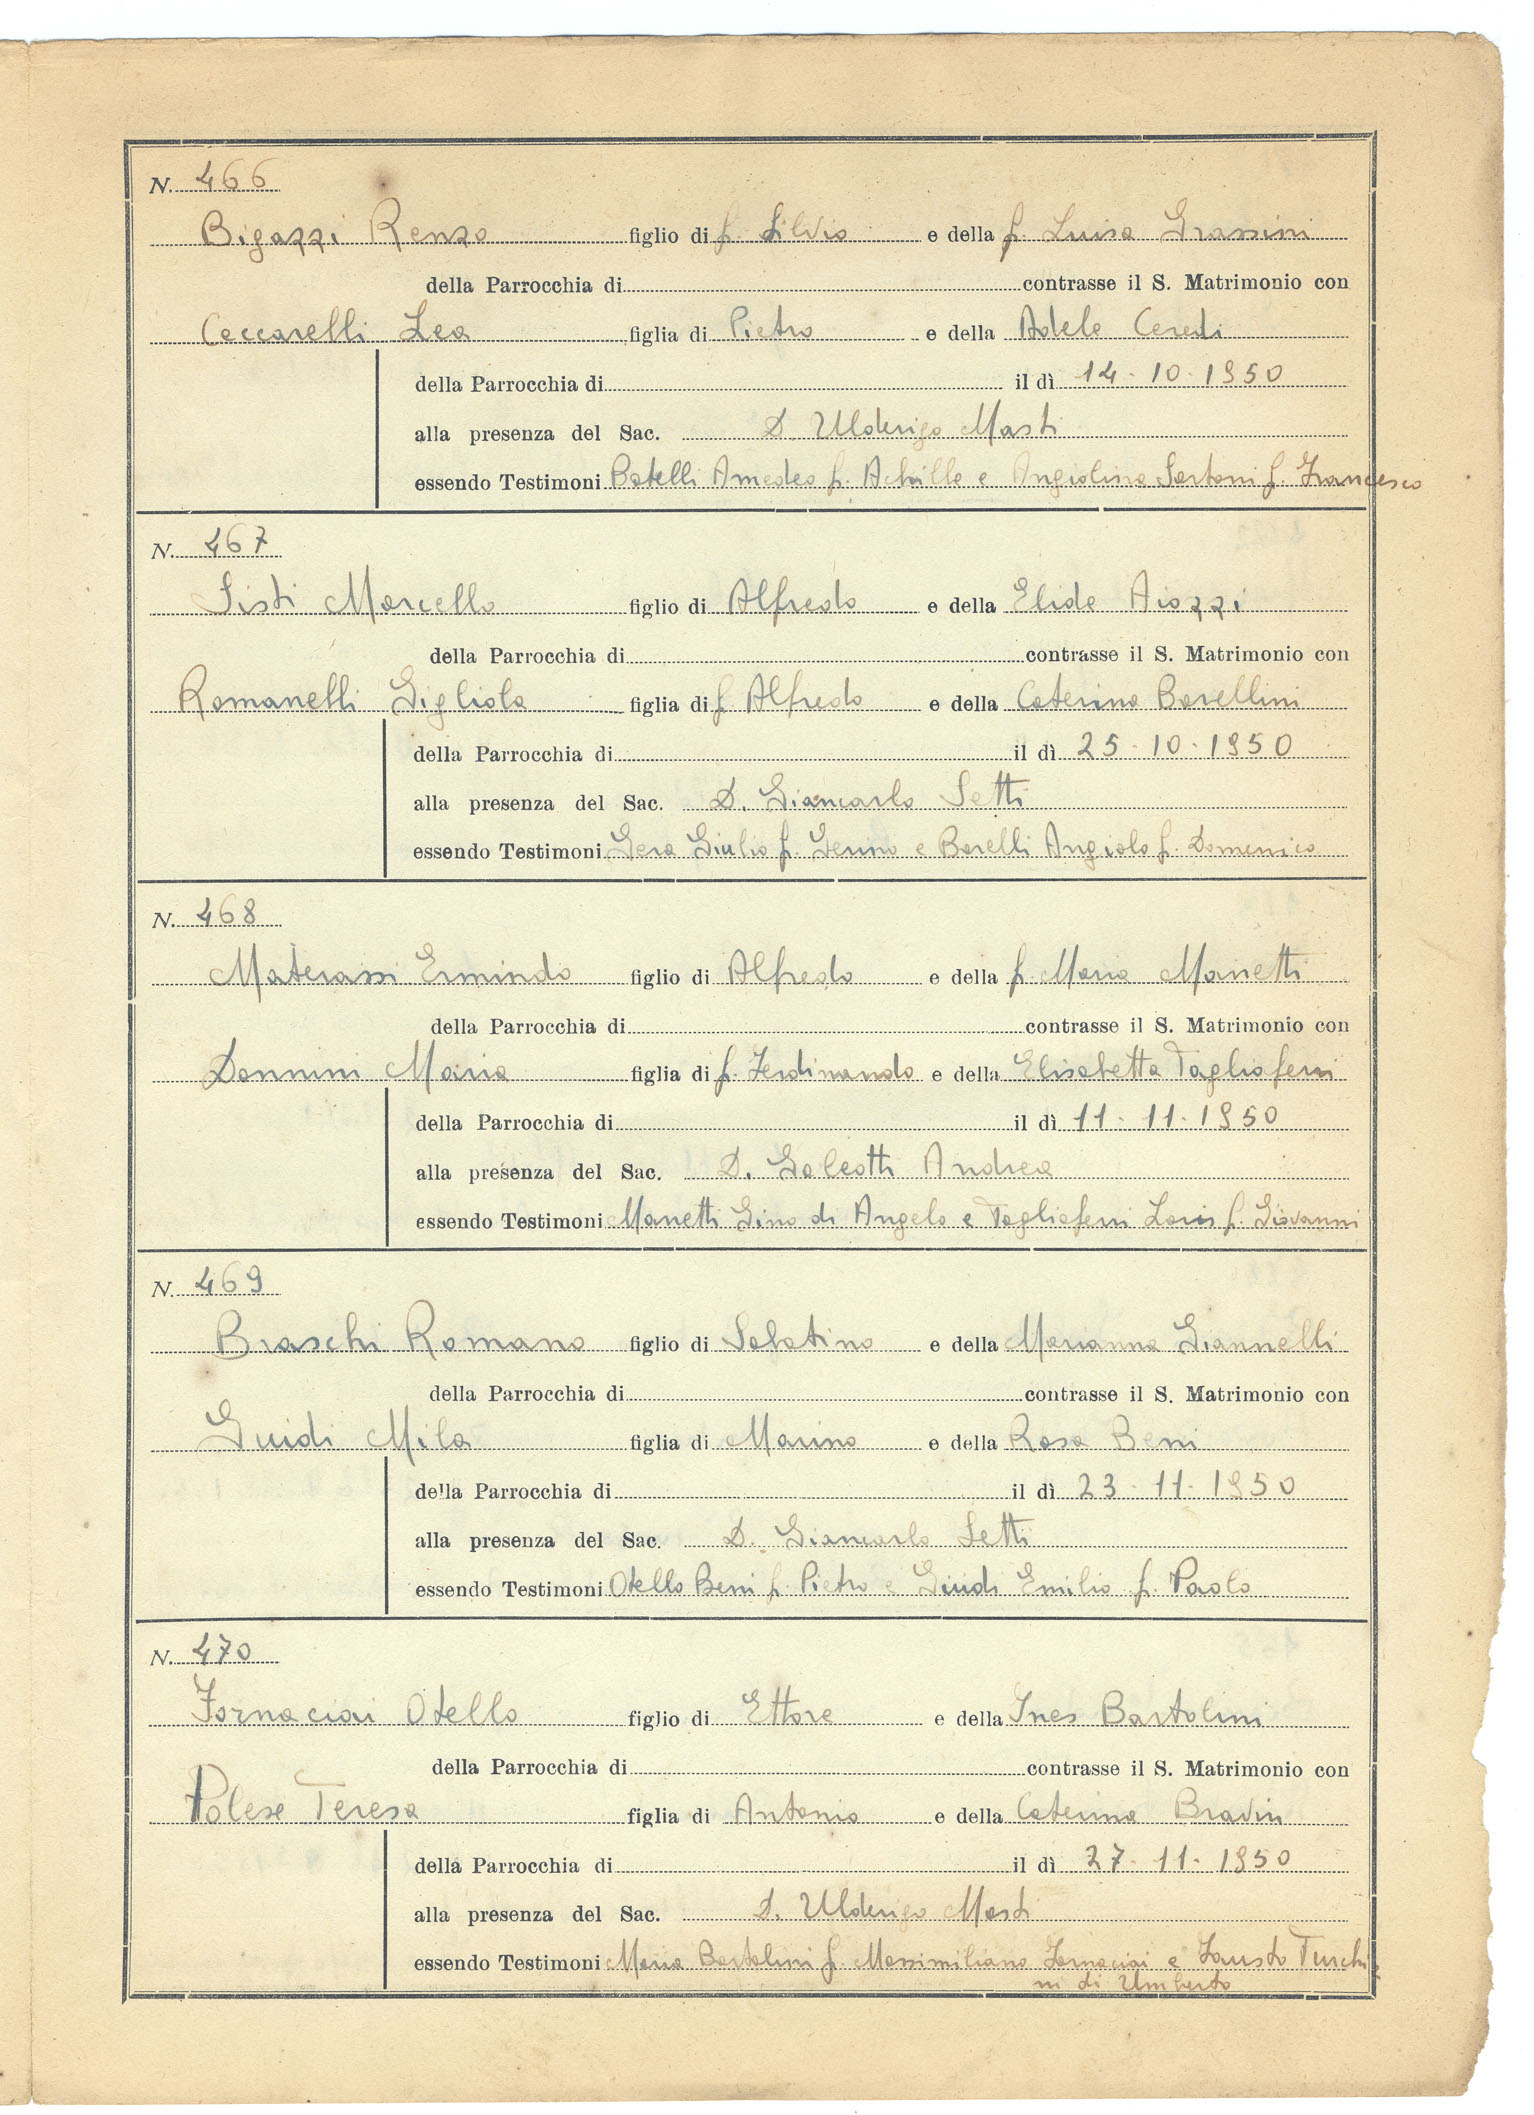 N. 466
Bigazzi Renzo figlio di f. Silvio e della f. Luisa Grassini
della Parrocchia di contrasse il S. Matrimonio con
Ceccarelli Lea figlia di Pietro e della Adele Ceredi
della Parrocchia di il dì 14-10-1950
alla presenza del Sac. D. Ulderigo Masti
essendo Testimoni Batelli Amedeo f. Achille e Angiolina Sartoni f. Francesco
N. 467
Sisti Marcello figlio di Alfredo e della Elide Aiazzi
della Parrocchia di contrasse il S. Matrimonio con
Romanelli Gigliola figlia di f Alfredo e della Caterina Barellini
della Parrocchia di il dì 25-10-1950
alla presenza del Sac. D. Giancarlo Setti
essendo Testimoni Gera Giulio f. Gerino e Barelli Angiolo f. Domenico
N. 468
Materassi Ermindo figlio di Alfredo e della f. Maria Manetti
della Parrocchia di contrasse il S. Matrimonio con
Dannini Maria figlia di f. Ferdinando e della Elisabetta Tagliaferri
della Parrocchia di il dì 11-11-1950
alla presenza del Sac. D. Galeotti Andrea
essendo Testimoni Manetti Gino di Angelo e Tagliaferri Loris f. Giovanni
N. 469
Braschi Romano figlio di Sabatino e della Marianna Giannelli
della Parrocchia di contrasse il S. Matrimonio con
Guidi Mila figlia di Marino e della Rosa Beni
della Parrocchia di il dì 23-11-1950
alla presenza del Sac. D. Giancarlo Setti
essendo Testimoni Otello Beni f. Pietro e Guidi Emilio f. Paolo
N. 470
Fornaciai Otello figlio di Ettore e della Ines Bartolini
della Parrocchia di contrasse il S. Matrimonio con
Polese Teresa figlia di Antonio e della Caterina Bravin
della Parrocchia di il dì 27-11-1950
alla presenza del Sac. D. Ulderigo Masti
essendo Testimoni Maria Bartolini f. Massimiliano Fornaciai e Fausto Turchi-
ni di Umberto